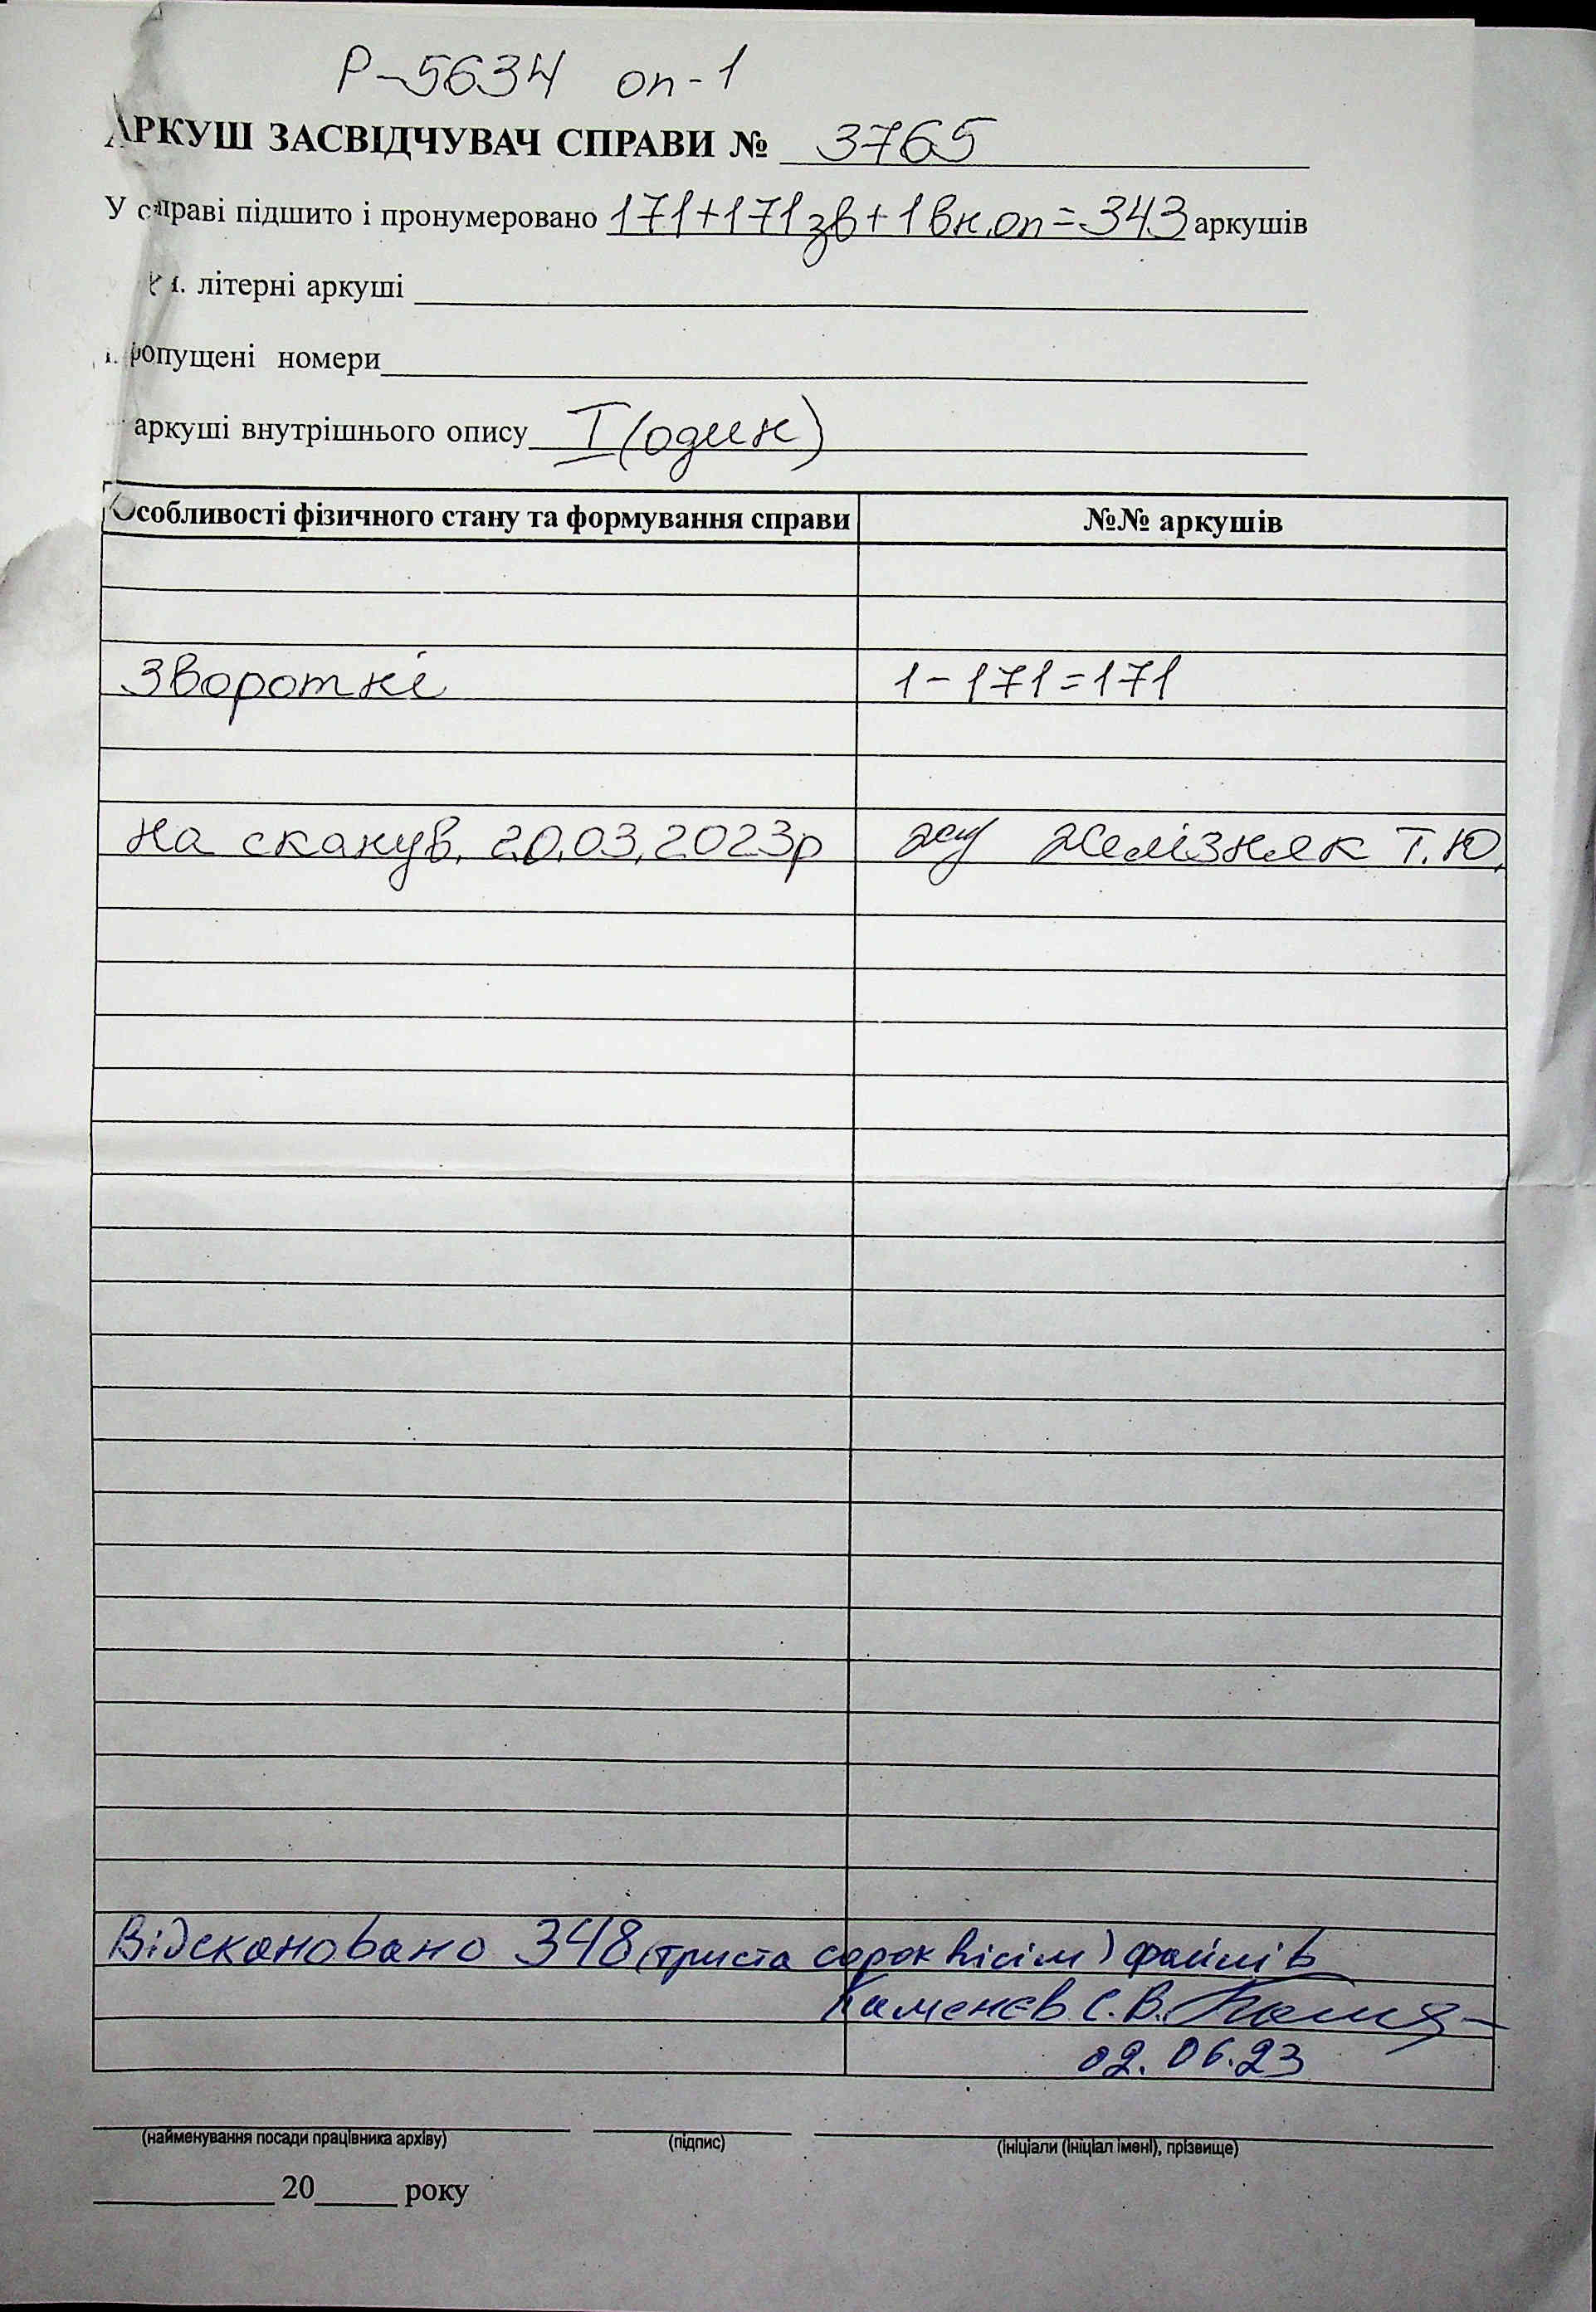 Р-5634 оп-1
АРКУШ ЗАСВІДЧУВАЧ СПРАВИ № 3765
У справі підшито і пронумеровано 171+171зв+1вн.оп=343 аркушів
літерні аркуші
пропущені номери
аркуші внутрішнього опису I (один)
Особливості фізичного стану та формування справи №№ аркушів
Зворотні 1-171=171
на сканув. 20.03.2023р Желізняк Т.Ю.
Відскановано 348 (триста сорок вісім) файлів
Каменєв С.В.
02.06.23
(найменування посади працівника архіву) (підпис) (ініціали (ініціал імені), прізвище)
20 року